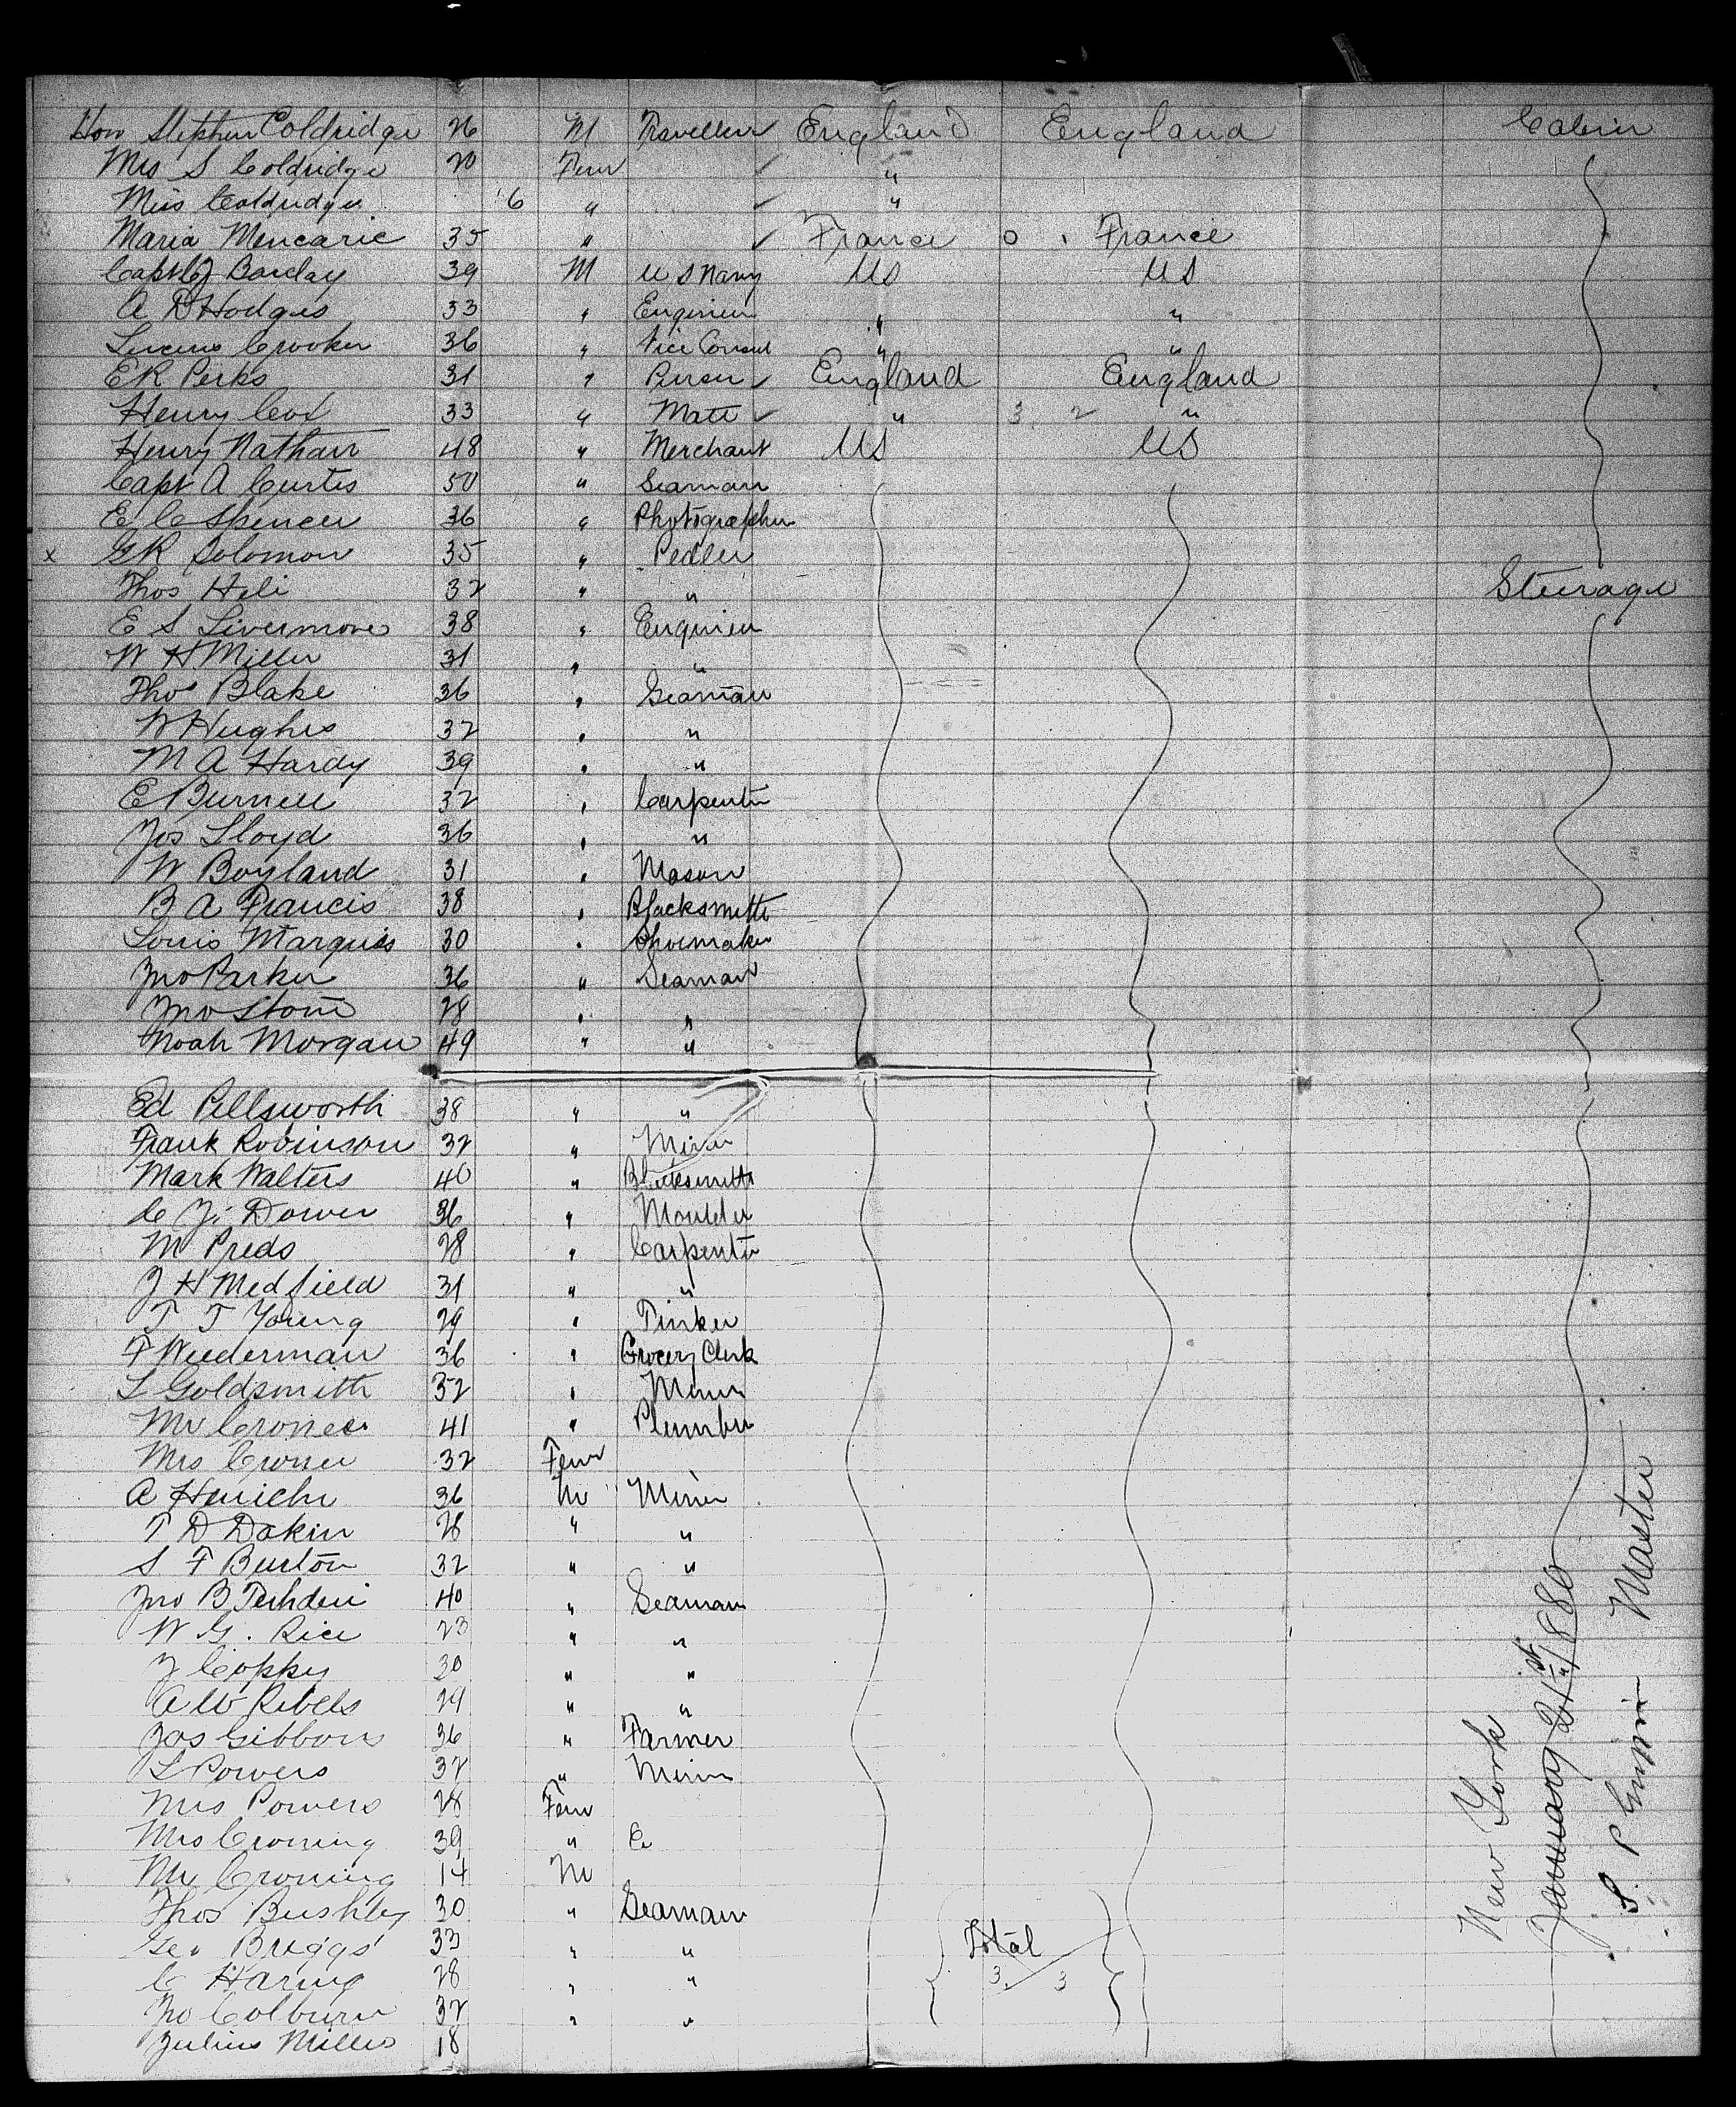 Hon Stephen Coldridge 26 M Traveller ✓ England England Cabin
Mrs S Coldridge 20 Fem ✓ "
Miss Coldridge 6 " ✓ "
Maria Mencarie 35 " ✓ France o France
Capt Barclay 39 M U S Navy US US
A D Hodges 33 " Engineer " "
Lucius Crooker 36 " Vice Consul " "
E R Perks 31 " Purser ✓ England England
Henry Cox 33 " Mate ✓ " 3 2 "
Henry Nathan 48 " Merchant US US
Capt A Curtis 50 " Seaman
E C Spencer 36 " Photographer
x G R Solomon 35 " Pedler
Thos Heli 32 " " Steerage
E S Livermore 38 " Engineer
W H Miller 31 " "
Thos Blake 36 " Seaman
W Hughes 32 " "
M A Hardy 39 " "
E Burnell 32 " Carpenter
Jos Lloyd 36 " "
W Boyland 31 " Mason
B A Francis 38 " Blacksmith
Louis Marquis 30 " Shoemaker
Jno Parker 36 " Seaman
Jno Stone 28 " "
Noah Morgan 49 " "
Ed Pellsworth 38 " "
Frank Robinson 32 " Miner
Mark Walters 40 " Blacksmith
C J. Dower 36 " Moulder
M Preds 28 " Carpenter
J H Medfield 31 " "
T T Young 29 " Tinker
F Weederman 36 " Grocery Clerk
L Goldsmith 32 " Miner
Mr Croner 41 " Plumber
Mrs Croner 32 Fem
A Henichr 36 M Miner
T D Dakin 28 " "
S F Burton 32 " "
Jno B 40 " Seaman
W G. Rice 23 " "
J Coppy 30 " "
A W Rebels 29 " "
Jas Gibbons 36 " Farmer
L Powers 32 " Miner
Mrs Powers 28 Fem
Mrs Croning 39 "
Mr Croning 14 M
Thos Bushby 30 " Seaman
Geo Briggs 33 " " Total
C Haring 28 " " 3 3
Jno Colburn 32 " "
Julius Miller 18
New York
January 21st 1880
S. P Master